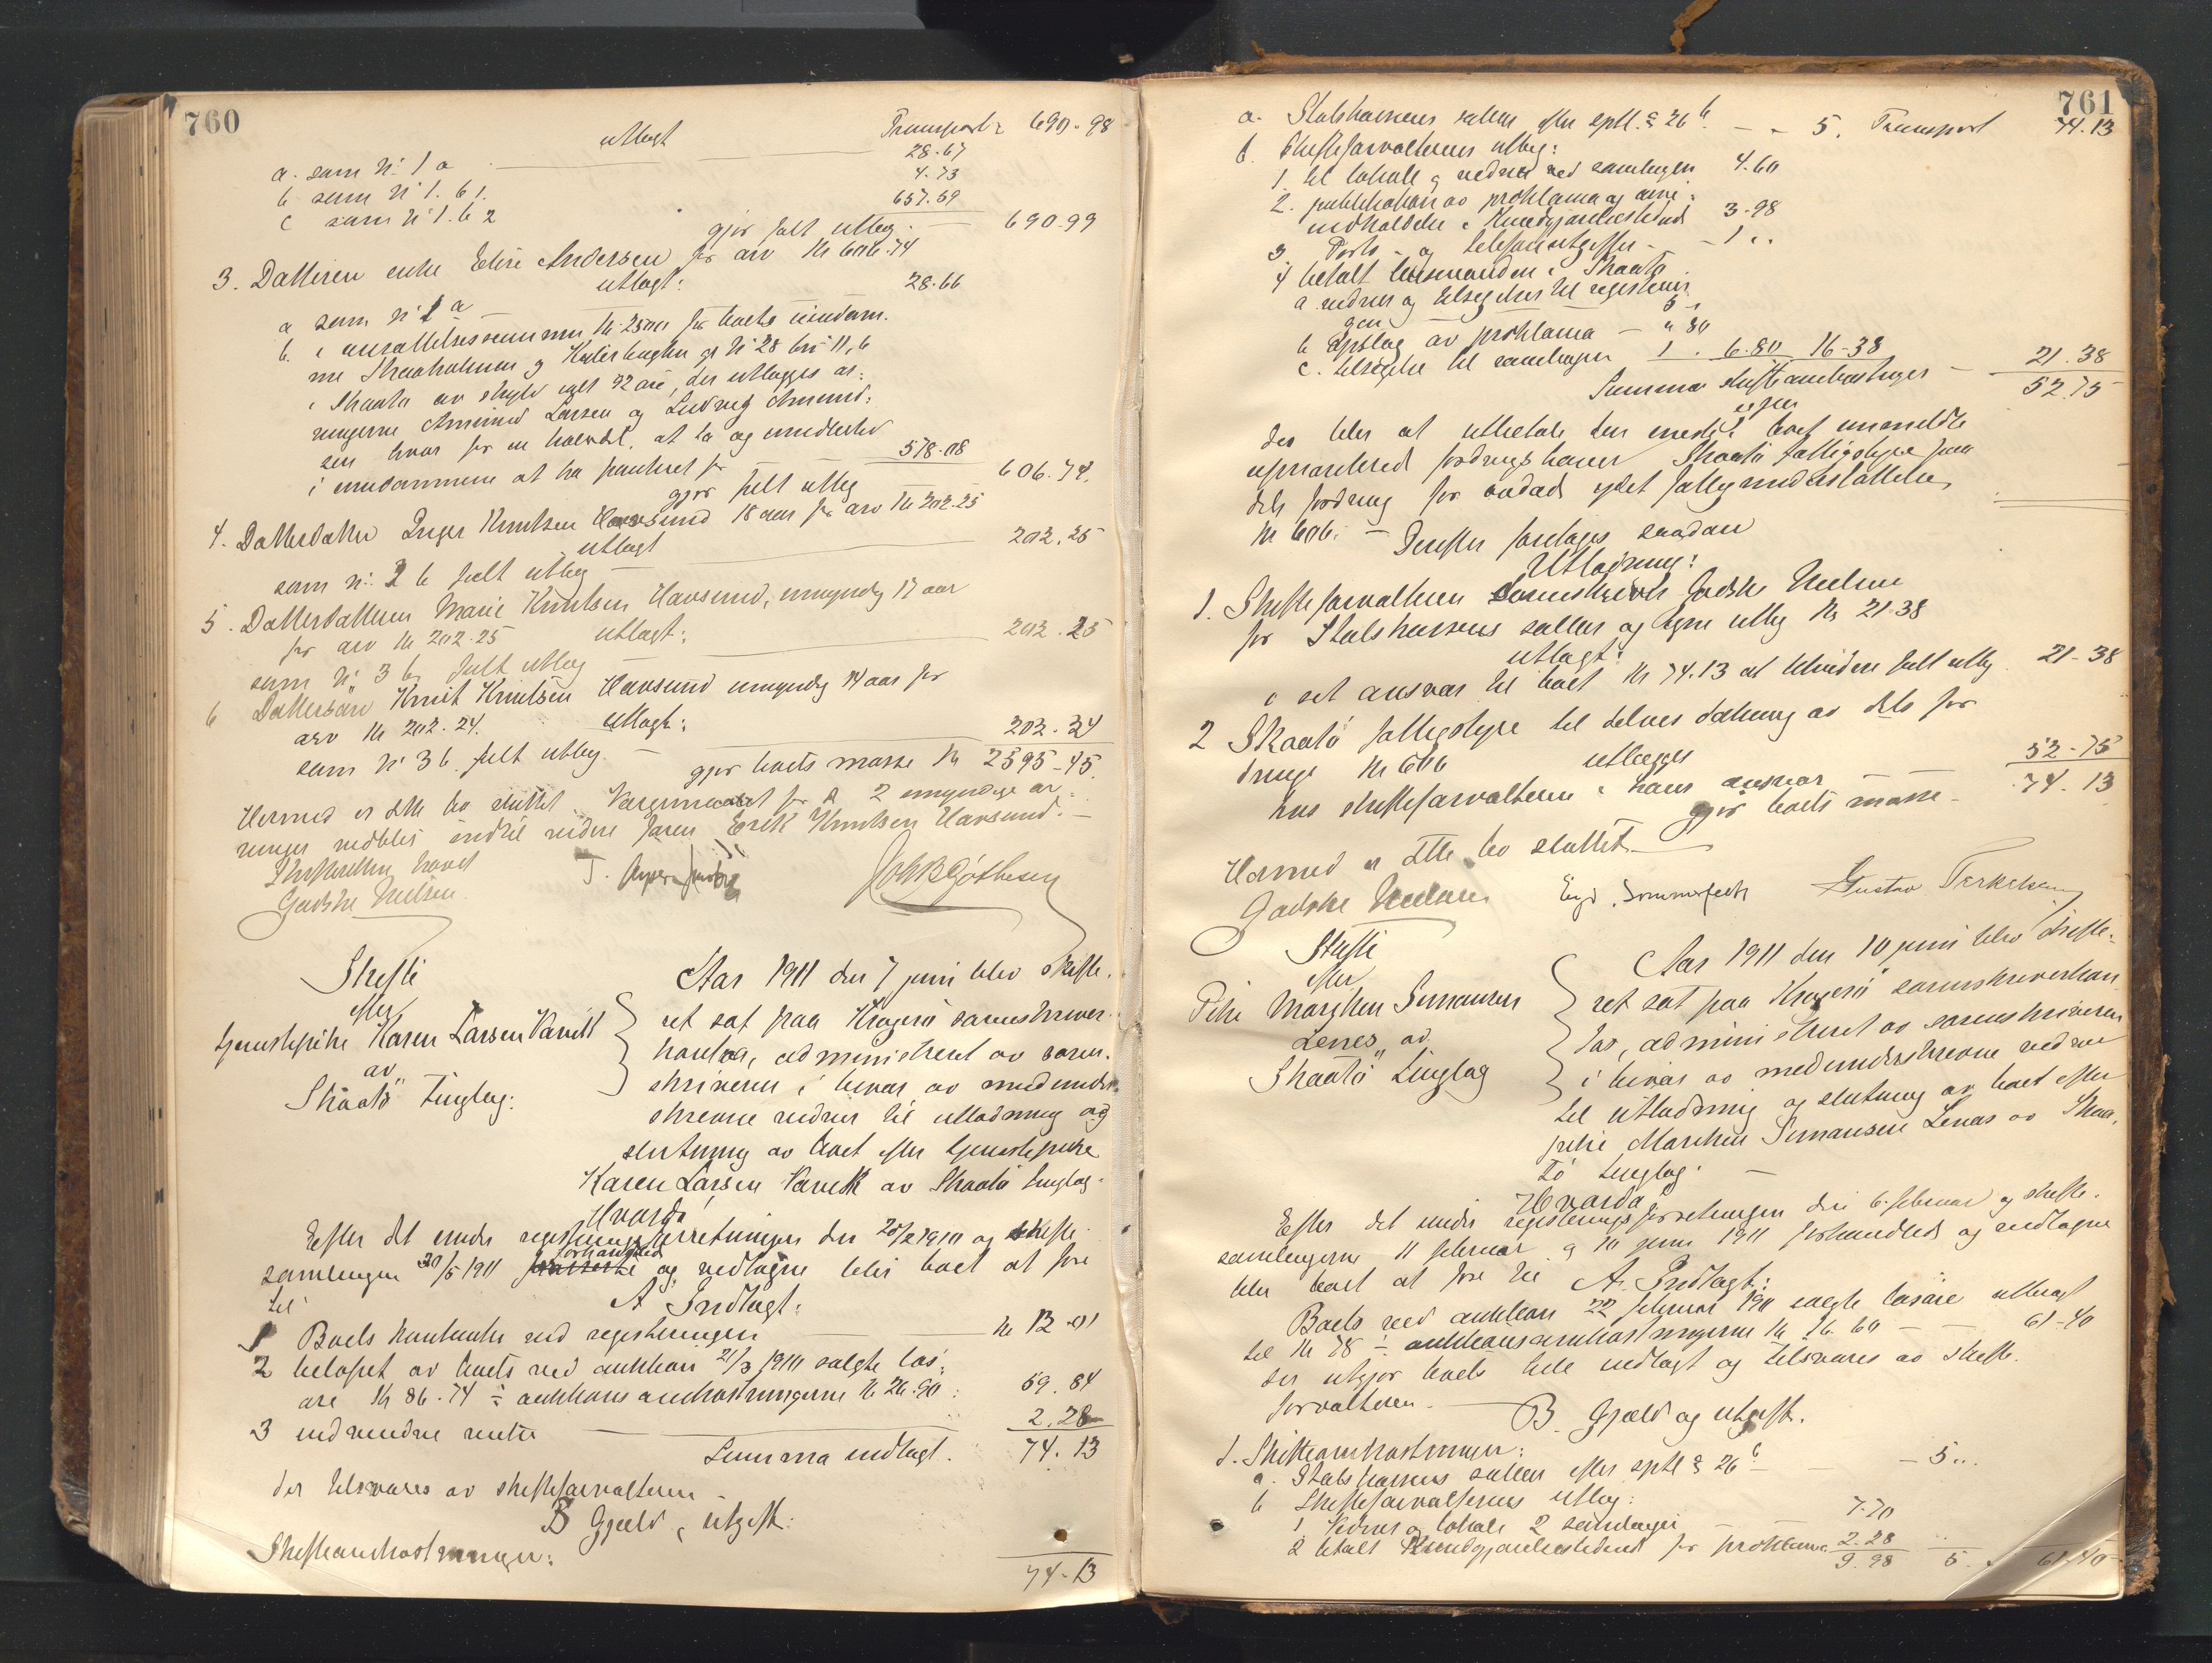 760
utlagt Transport: 690-98
a. som No 1 a 28-67
b som No 1. b 1. 4.73
c som No 1. b 2 657.59
gjør fult utlæg 690-99
3. Datteren enke Elire Andersen for arv Kr 606.74
utlagt:
a som No 1 a 28.66
b. i ansættelsessummen Kr 2500 for boets eiendom.
me Skaaholmen og gr No 28 br 11, 6
i Skaatø av skyld ialt 92 øre, der utlægges ar:
vingerne Amund Larsen og Ludvig Amund:
sen hver for en halvdel, at ta og imidlertid
i eiendommene at ha panteret for 578.08
gjør fult utlæg 606.74.
4. Datterdatter Inger Knutsen Havsund 18 aar for arv Kr 202.25
utlagt
som No 2 b fult utlæg 202.25
5. Datterdatteren Marie Knutsen Havsund, umyndig 17 aar
for arv Kr 202-25 utlagt:
som No 3 b fult utlæg 202.25
6 Dattersøn Knut Knutsen Havsund umyndig 14 aar for
arv Kr 202.24. utlagt:
som No 3 b. fult utlæg 202.24
gjør boets masse Kr 2595-45.
Hermed er dette bo sluttet. Værgemaalet for de 2 umyndige ar:
vinger vedblir indtil videre faren Erik Knutsen Havsund.
Skifteretten hævet
Gadske Nielsen. T. Joh B Gjøthesen
Skifte
efter
tjenestepike Karen Larsen Varvik
av
Skaatø tinglag:
Aar 1911 den 7 juni blev skifte:
ret sat paa Kragerø sorenskriver
kontor, administreret av soren:
skriveren i bivær av medunder:
skrevne vidner til utlodning og
slutning av boet efter tjenestepike
Karen Larsen Varvik av Skaatø tinglag.
Hvorda
Efter det under registreringsforretningen den 20/2 1911 og skifte
samlingen 30/5 1911 forhandled og vedtagne blir boet atføre
til
A Indtægt:
1 Boets kontanter ved registreringen Kr 12-01
2 beløpet av boets ved auktion 21/3 1911 solgte løs:
øre Kr 86.74 ÷ auktionsomkostningerne Kr 26.90: 59.84
3 indvundne renter 2.28
Summa indtægt. 74.13
der tilsvares av skifteforvalteren
B Gjæld & utgift:
Skifteomkostninger:
74-13
761
a. Statskassens sallær efter sptl. § 26 b. - - 5. Transport 74.13
b. Skifteforvalterens utlæg:
1. til lokale og vidner ved samlingen 4.60
2. publikation av proklama og avis:
indholdelse i Kundgjørelsestid. 3-98
3 Porto- og telefonutgifter - - 1 ..
4 betalt lensmanden i Skaatø
a vidner og tilsigelser til registerin:
gen 5 -
b Opslag av proklama - " 80
c. tilsigelse til samlingen 1 . 6.80 16-38 21.38
Summa skifteomkostninger - 52.75
der blir at utbetale den eneste i boet anmeldte
uprioriterede fordringshaver Skaatø fattigstyre paa
dets fordring for avdøde ydet fattigunderstøttelse
Kr 606. - Derefter foretages saadan
Utlodning:
1. Skifteforvalteren Sorenskriver Gadske Nielsen
for Statskassens sallær og egne utlæg Kr 21.38
utlagt:
i sit ansvar til boet Kr 74.13 at likvidere fult utlæg 21-38
2 Skaatø fattigstyre til delvis dækning av dets for
dringe Kr 606 utlægges
hos skifteforvalteren i hans ansvar 52-75
gjør boets masse - 74.13
Hermed er dette bo sluttet.
Gadske Nielsen Eyv. Sommerfeldt Gustav Terkelsen
Skifte
efter
Pike Marthea Simonsen
Lenes av
Skaatø tinglag
Aar 1911 den 10 juni blev skifte:
ret sat paa Kragerø sorenskriverkon
tor, administreret av sorenskriveren
i bivær av medunderskrevne vidner
til utlodning og slutning av boet efter
pike Marthea Simonsen Lenes av Skaa:
tø tinglag.
Hvorda
Efter det under registreringsforretningen den 6. februar og skifte:
samlingerne 11 februar og 10 juni 1911 forhandlede og vedtagne
blir boet at føre til A. Indtægt:
Boets ved auktion 22 februar 1911 solgte løsøre utbragt
til Kr 78 ÷ auktionsomkostningerne Kr 16.60 - - 61-40
der utgjør boets hele indtægt og tilsvares av skifte:
forvalteren.
B. Gjæld og utgift.
1. Skifteomkostninger:
a. Statskassens sallær efter sptl § 26 b - - 5 ..
b Skifteforvalterens utlæg:
1 Vidner og lokale 2 samlinger 7.70
2 betalt Kundgjørelsestidende for proklama 2.28
9.98 5. 61.40